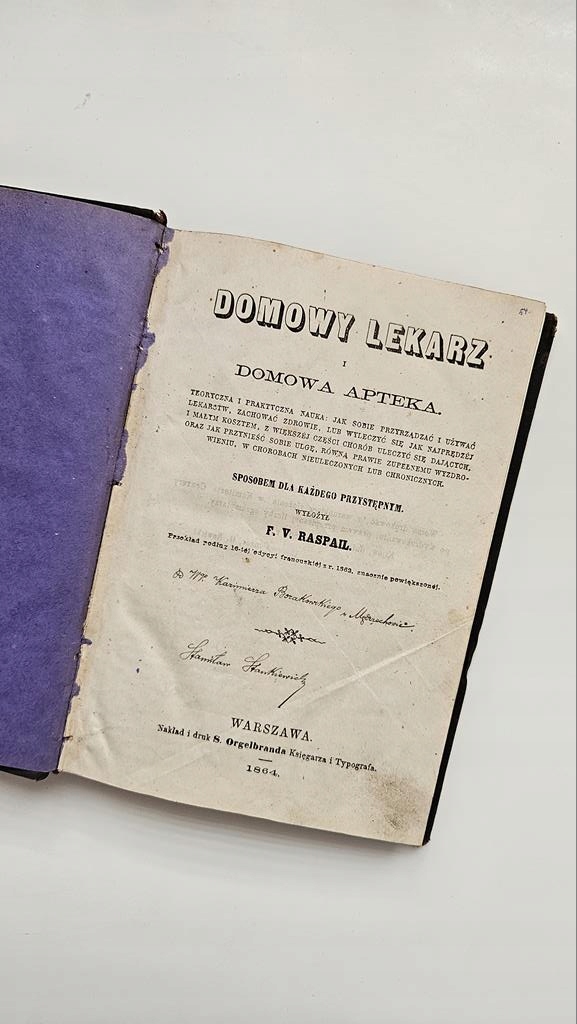 54
DOMOWY LEKARZ
I
DOMOWA APTEKA.
TEORYCZNA I PRAKTYCZNA NAUKA: JAK SOBIE PRZYRZĄDZAĆ I UŻYWAĆ
LEKARSTW, ZACHOWAĆ ZDROWIE, LUB WYLECZYĆ SIĘ JAK NAJPRĘDZÉJ
I MAŁYM KOSZTEM, Z WIĘKSZÉJ CZĘŚCI CHORÓB ULECZYĆ SIĘ DAJĄCYCH,
ORAZ JAK PRZYNIEŚĆ SOBIE ULGĘ, RÓWNĄ PRAWIE ZUPEŁNEMU WYZDRO-
WIENIU, W CHOROBACH NIEULECZONYCH LUB CHRONICZNYCH.
SPOSOBEM DLA KAŻDEGO PRZYSTĘPNYM.
WYŁOŻYŁ
F. V. RASPAIL.
Przekład podług 16-téj edycyi francuskiéj z r. 1863, znacznie powiększonéj.
WP. Kazimierza z
Stanisław Stankiewicz
WARSZAWA.
Nakład i druk S. Orgelbranda Księgarza i Typografa.
1864.